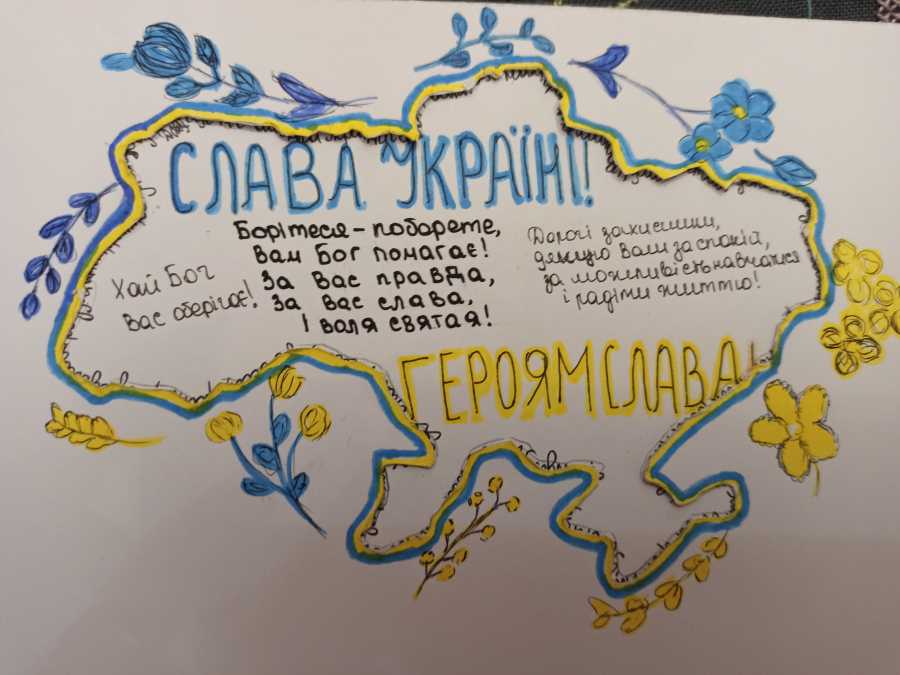 СЛАВА УКРАЇНІ!
Борітеся - поборете,
Вам Бог помагає!
За вас правда,
За вас слава,
І воля святая!
Хай Бог
вас оберігає!
Дорогі захисники,
дякую вам за спокій,
за можливість навчатися
і радіти життю!
ГЕРОЯМ СЛАВА!